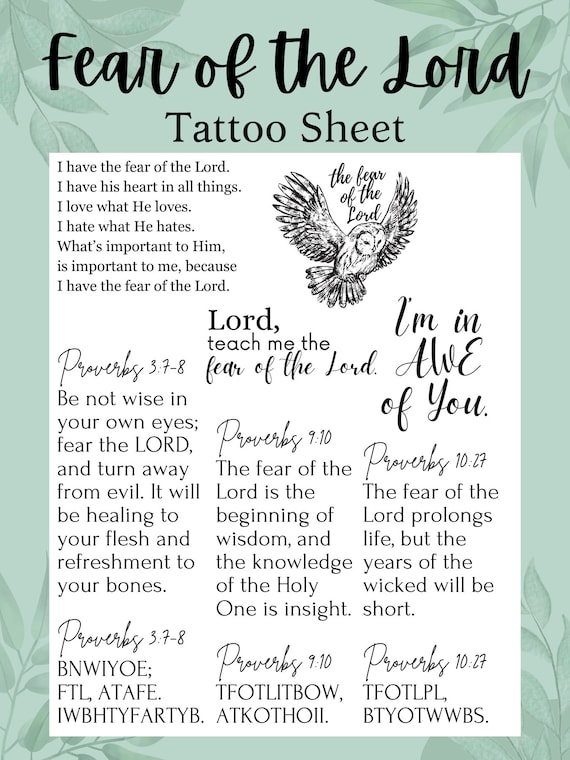 Fear of the Lord
Tattoo Sheet
I have the fear of the Lord.
I have his heart in all things.
I love what He loves.
I hate what He hates.
What's important to Him,
is important to me, because
I have the fear of the Lord.
the fear
of the
Lord
Lord,
teach me the
fear of the Lord.
I'm in
AWE
of You.
Proverbs 3:7-8
Be not wise in
your own eyes;
fear the LORD,
and turn away
from evil. It will
be healing to
your flesh and
refreshment to
your bones.
Proverbs 9:10
The fear of the
Lord is the
beginning of
wisdom, and
the knowledge
of the Holy
One is insight.
Proverbs 10:27
The fear of the
Lord prolongs
life, but the
years of the
wicked will be
short.
Proverbs 3:7-8
BNWIYOE;
FTL, ATAFE.
IWBHTYFARTYB.
Proverbs 9:10
TFOTLITBOW,
ATKOTHOII.
Proverbs 10:27
TFOTLPL,
BTYOTWWBS.